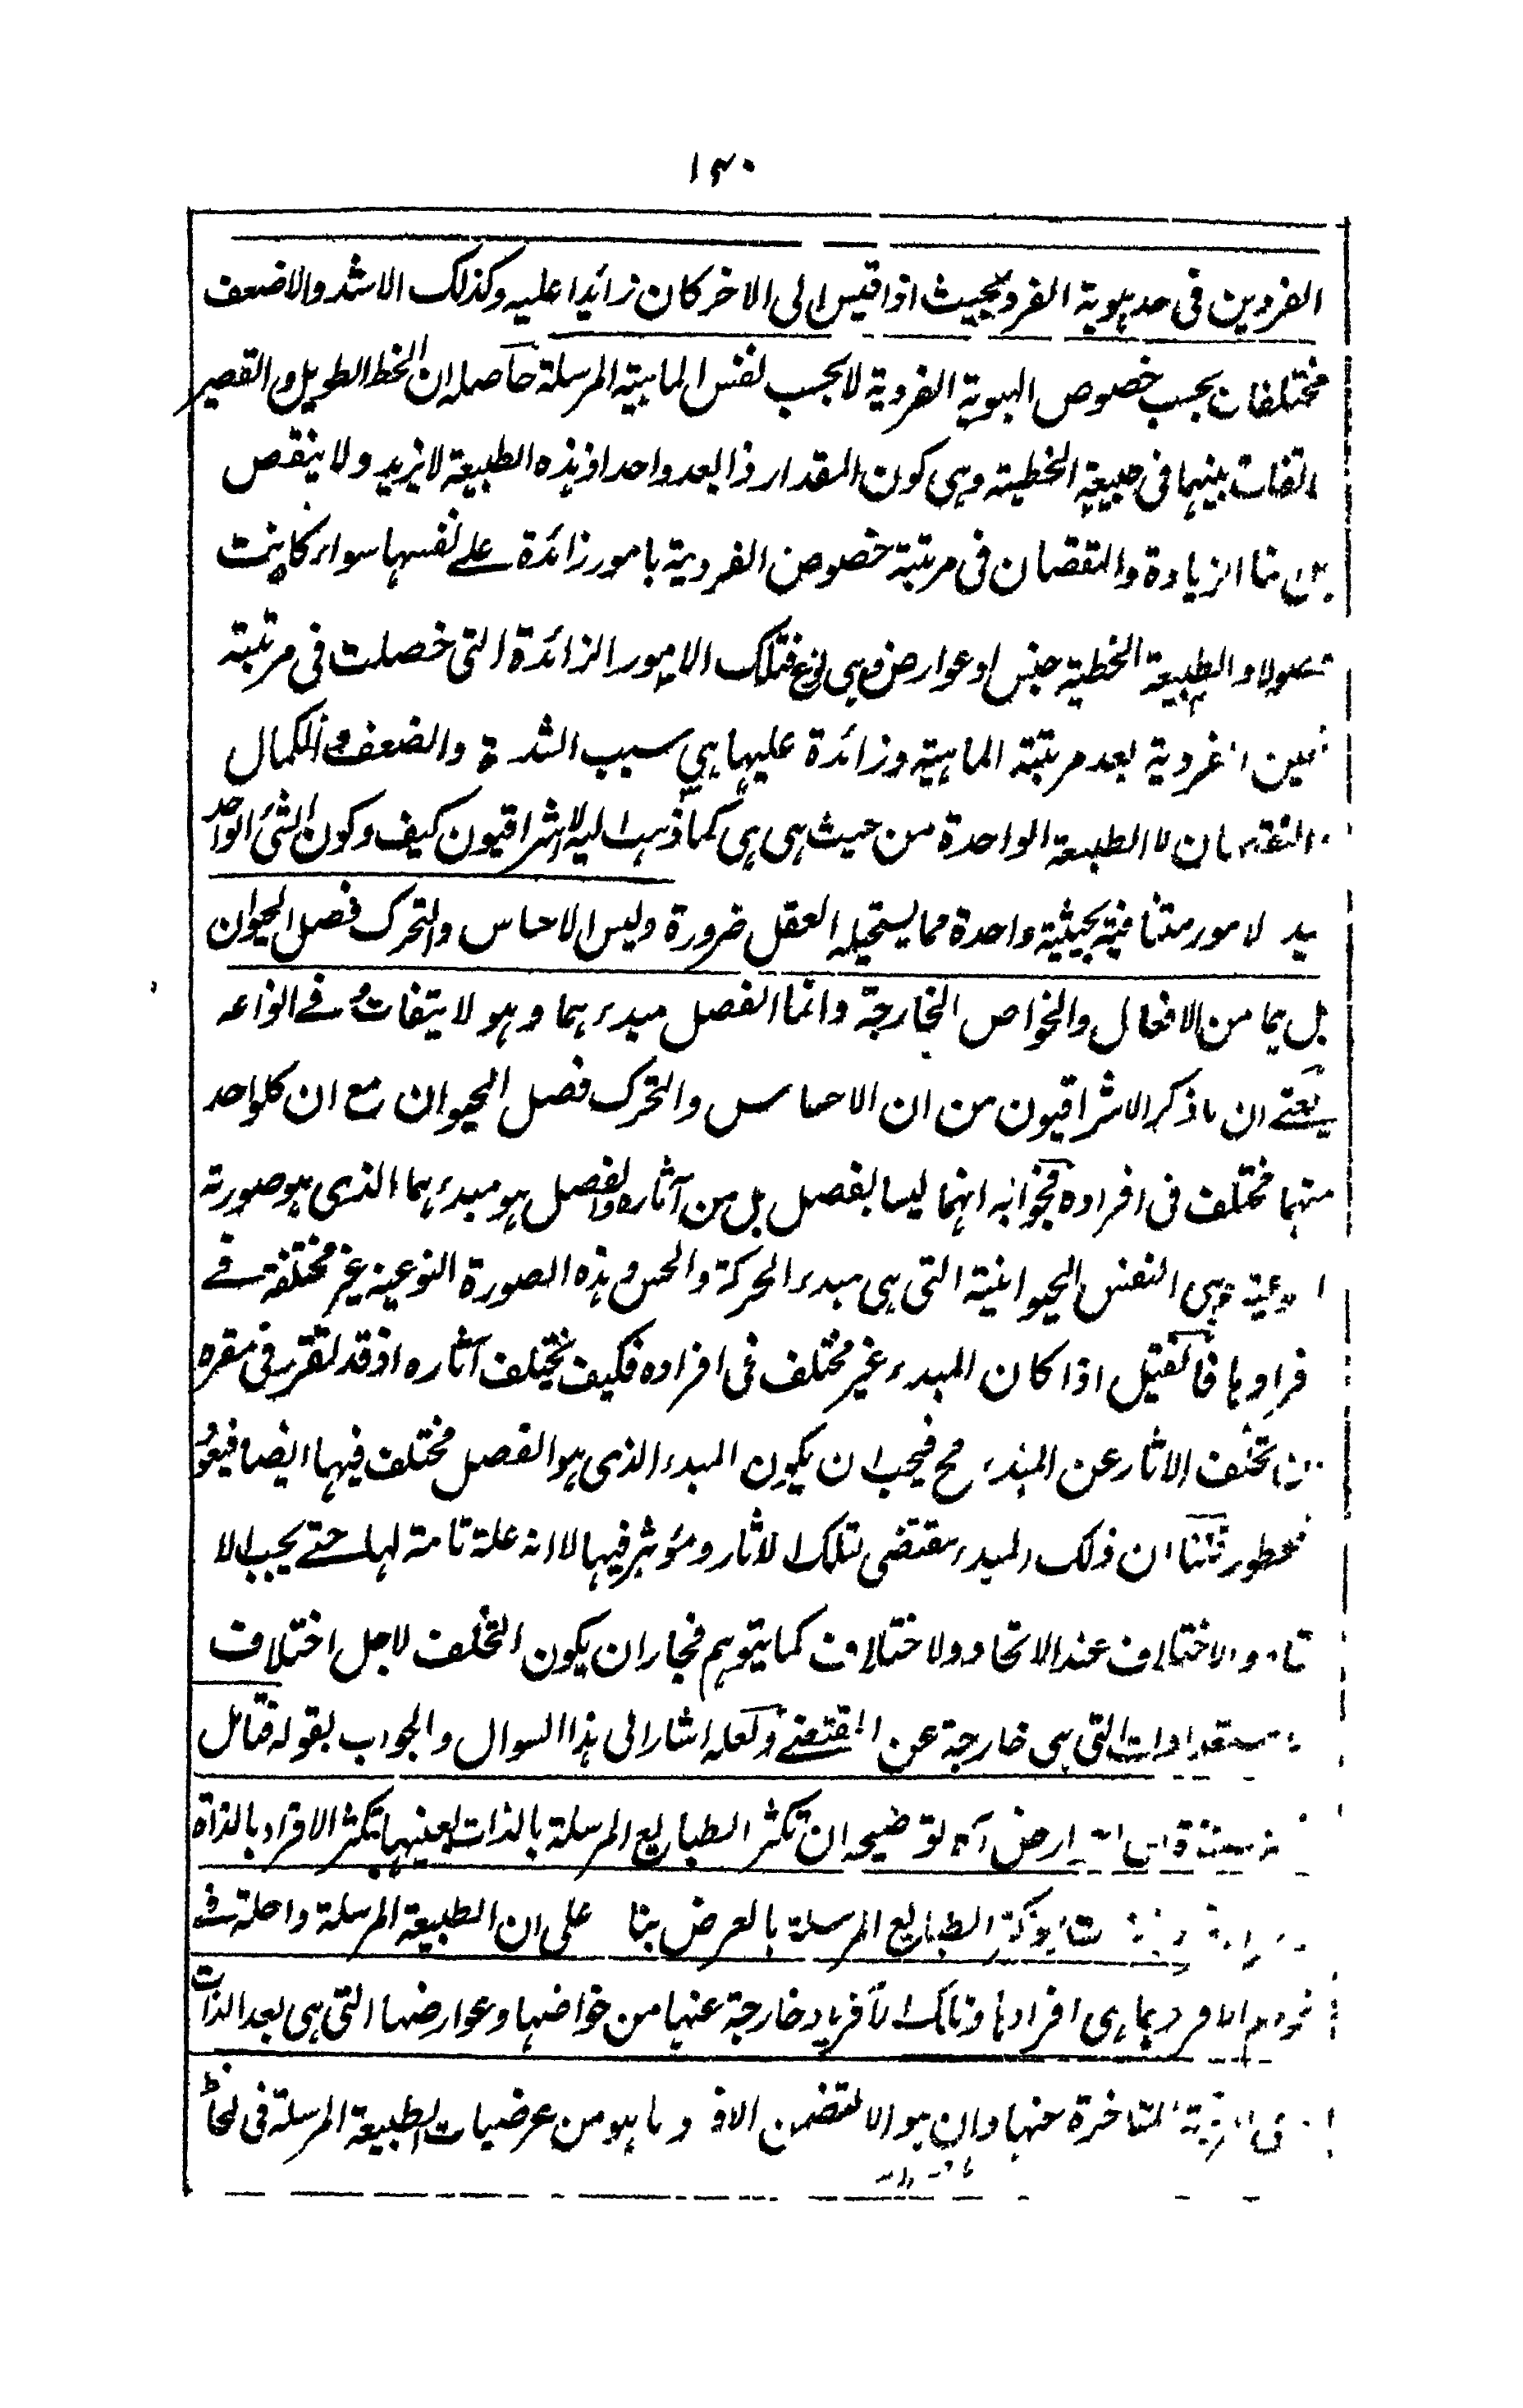 ١٣٠
الفردين فى حد هوية الفرد بحيث اذا قيس الى الاخر كان زائدا عليه وكذلك الاشد والاضعف
مختلفان بحسب خصوص الهوية الفردية لا بحسب نفس الماهية المرسلة حاصله ان الخط الطويل والقصير
لا تفات بينهما فى طبيعة الخطية وهى كون المقدار ذا بعد واحد اذ هذه الطبيعة لا يزيد ولا ينقص
الزيادة والنقصان فى مرتبة خصوص الفردية بامور زائدة على نفسها سواء كانت
فصولا والطبيعة الخطية جنس او عوارض وهى نوع فتلك الامور الزائدة التى حصلت فى مرتبة
الفردية بعد مرتبة الماهية وزائدة عليها هي سبب الشدة والضعف والكمال
والنقصان لا الطبيعة الواحدة من حيث هى هى كما ذهب اليه الاشراقيون كيف وكون الشئ الواحد
لامور متنافية بحيثية واحدة مما يستحيله العقل ضرورة وليس الاحساس والتحرك فصل الحيوان
بل هما من الافعال والخواص الخارجة وانما الفصل مبدءهما وهو لا يتفات فے انواعه
يعنے ان ما ذكر الاشراقيون من ان الاحساس والتحرك فصل الحيوان مع ان كلواحد
منهما مختلف فى افراده فجوابه انهما ليسا بفصل بل من آثاره والفصل هو مبدءهما الذى هو صورته
وهى النفس الحيوانية التى هى مبدء الحركة والحس وهذه الصورة النوعية غير مختلفة فے
افرادها فان قيل اذا كان المبدء غير مختلف فى افراده فكيف يختلف آثاره اذ قد تقرر فى مقره
تخلف الاثار عن المبدء مح فيجب ان يكون المبدء الذى هو الفصل مختلف فيها ايضا فيعود
المحظور قلنا ان ذلك المبدء مقتضى لتلك الاثار ومؤثر فيها لا انه علة تامة لها حتے يجب الا
والاختلاف عند الاتحاد ولاختلاف كما يتوهم فجاز ان يكون التخلف لاجل اختلاف
الاستعدادات التى هى خارجة عن المقتضے ولعله اشار الى هذا السوال والجواب بقوله فتامل
ارض آه توضيحه ان تكثر الطبايع المرسلة بالذات بعينها بتكثر الافراد بالذات
الطبايع المرسلة بالعرض بنا على ان الطبيعة المرسلة واحلة فے
بما هى افرادها وتلك الافراد خارجة عنها من خواصها وعوارضها التى هى بعد الذات
المتاخرة عنها وان هو الا لتضمن ما هو من عرضيات الطبيعة المرسلة فى لحاظ